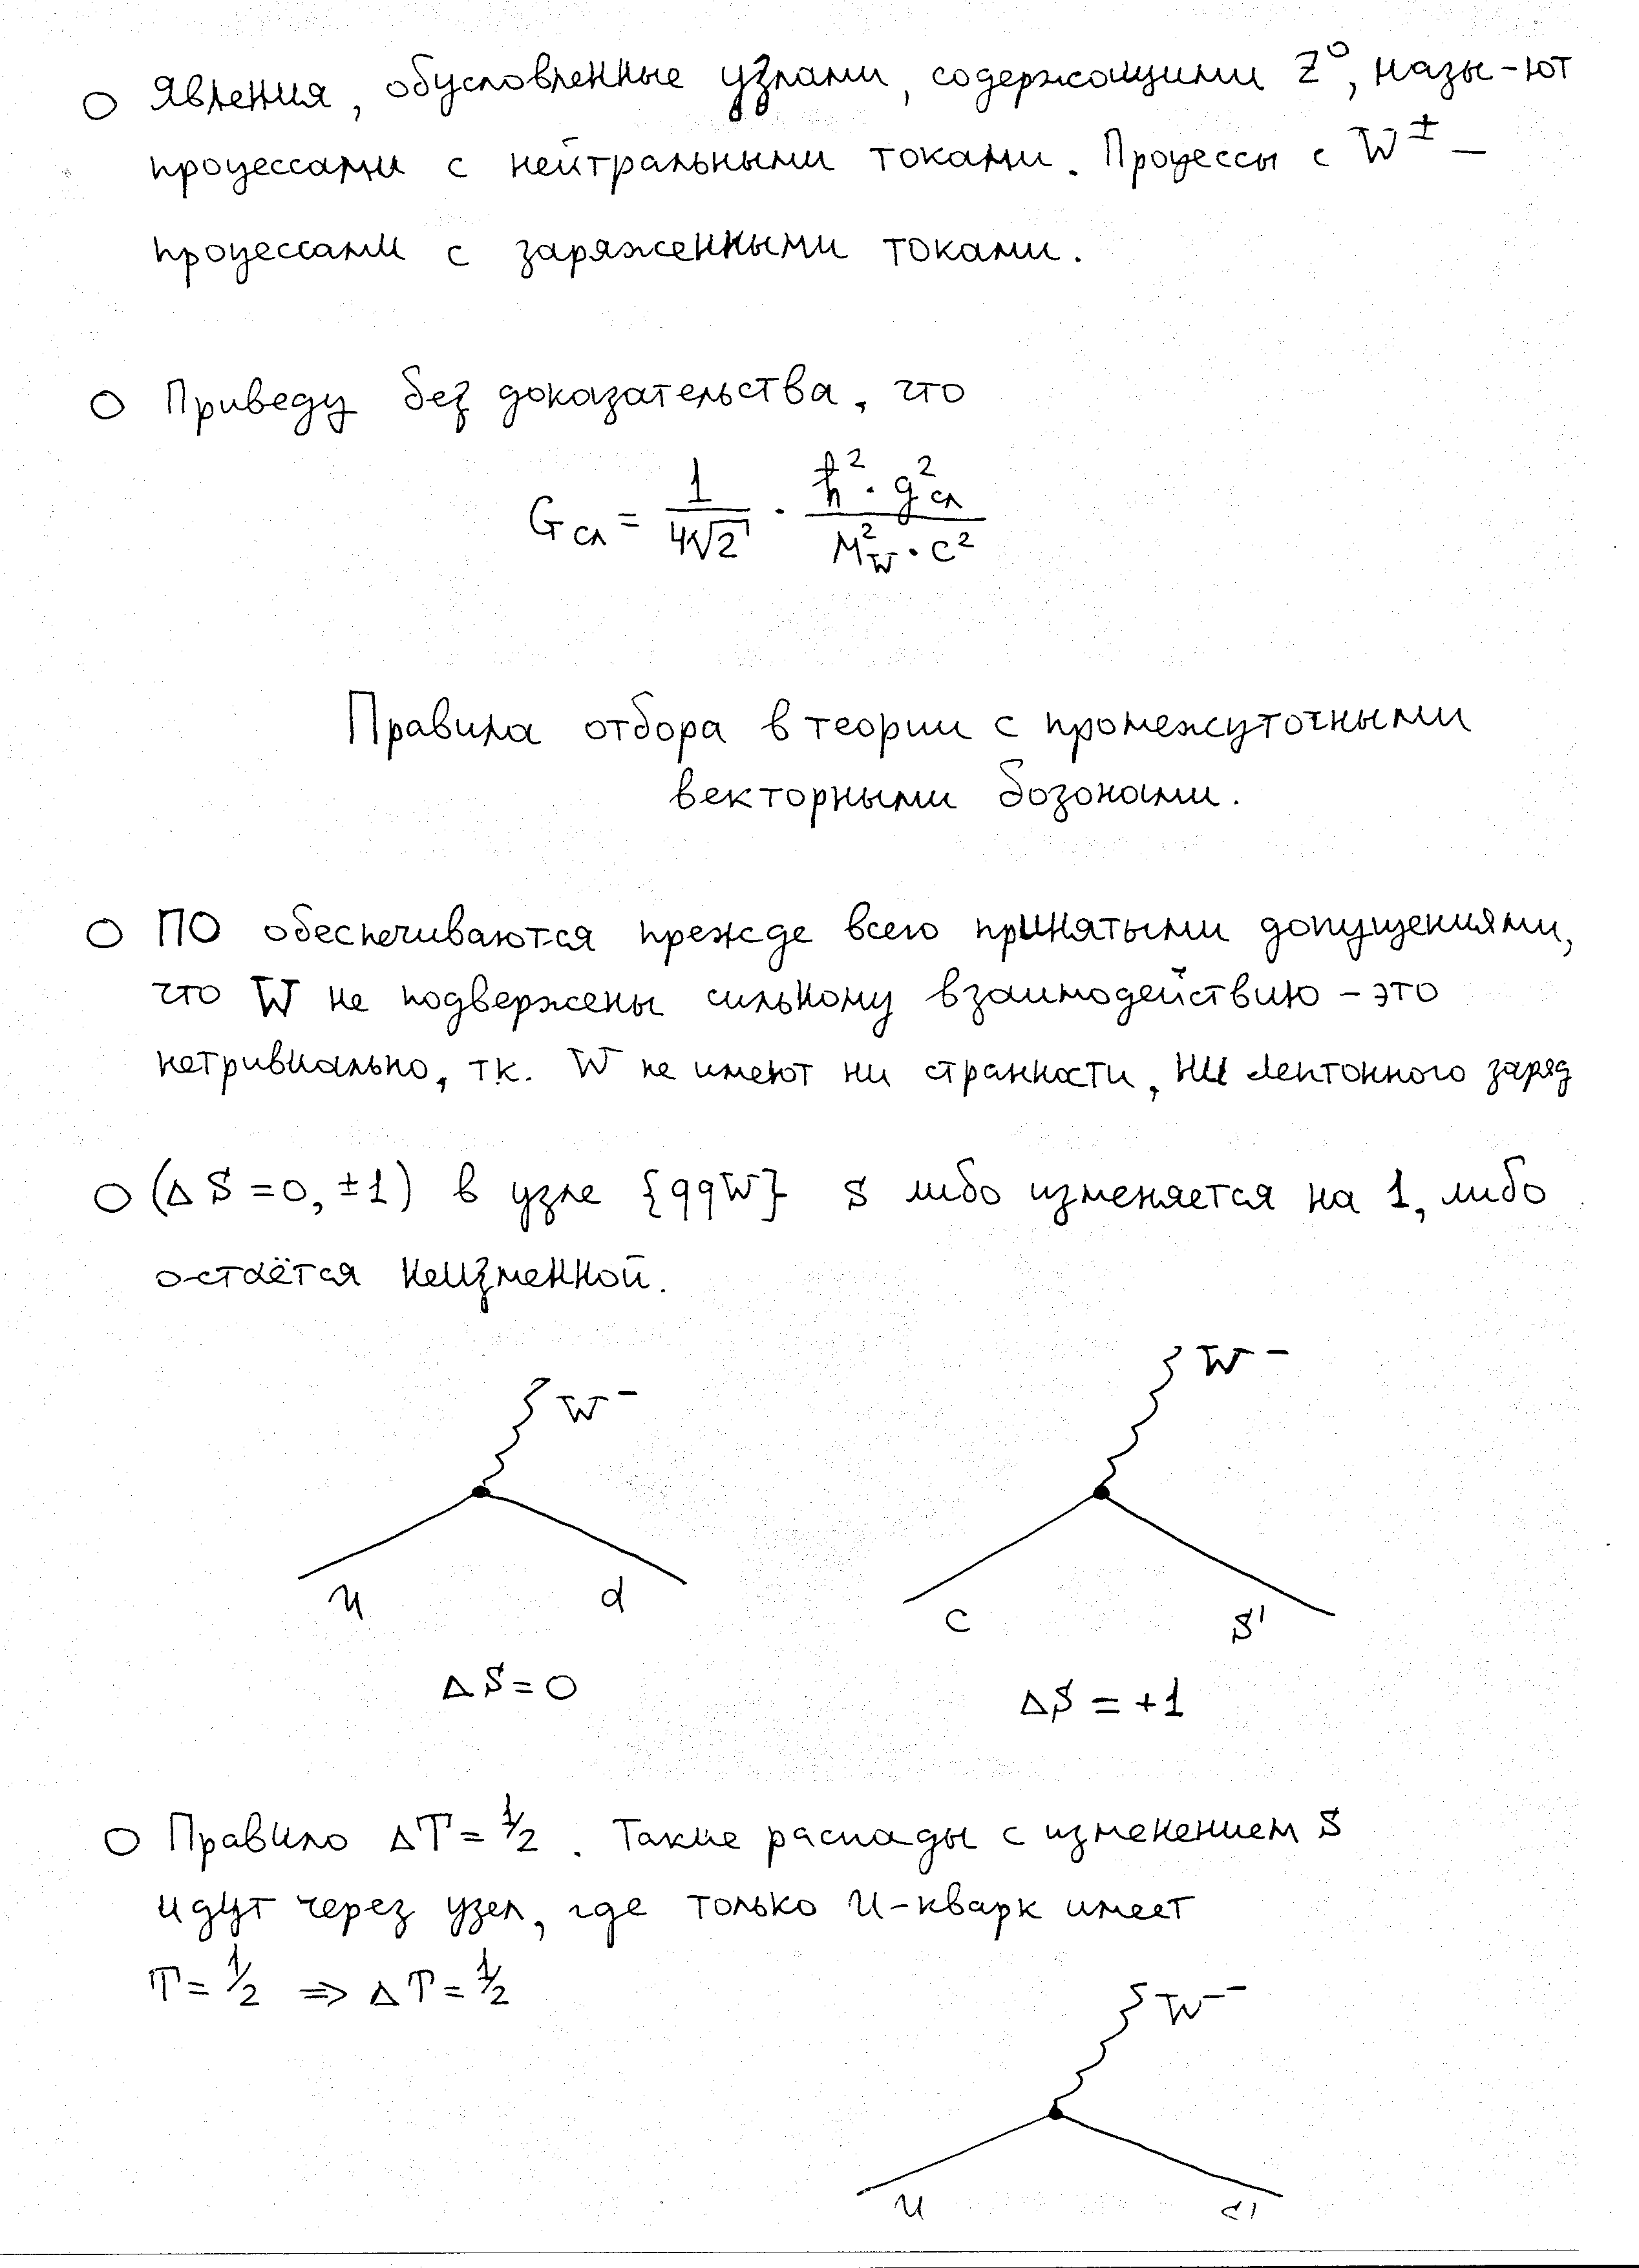 ○ Явления, обусловленные узлами, содержащими Z⁰, назы-ют
процессами с нейтральными токами. Процессы с W± –
процессами с заряженными токами.
○ Приведу без доказательства, что
Gсл = 1/(4√2) · (ħ² · g²сл)/(M²W · c²)
Правила отбора в теории с промежуточными
векторными бозонами.
○ ПО обеспечиваются прежде всего принятыми допущениями,
что W не подвержены сильному взаимодействию – это
нетривиально, т.к. W не имеют ни странности, ни лептонного заряд
○ (ΔS = 0, ±1) в узле {qqW} S либо изменяется на 1, либо
остаётся неизменной.
W⁻ W⁻
u d c s'
ΔS = 0 ΔS = +1
○ Правило ΔT = 1/2. Такие распады с изменением S
идут через узел, где только u-кварк имеет
T = 1/2 ⇒ ΔT = 1/2
W⁻
u